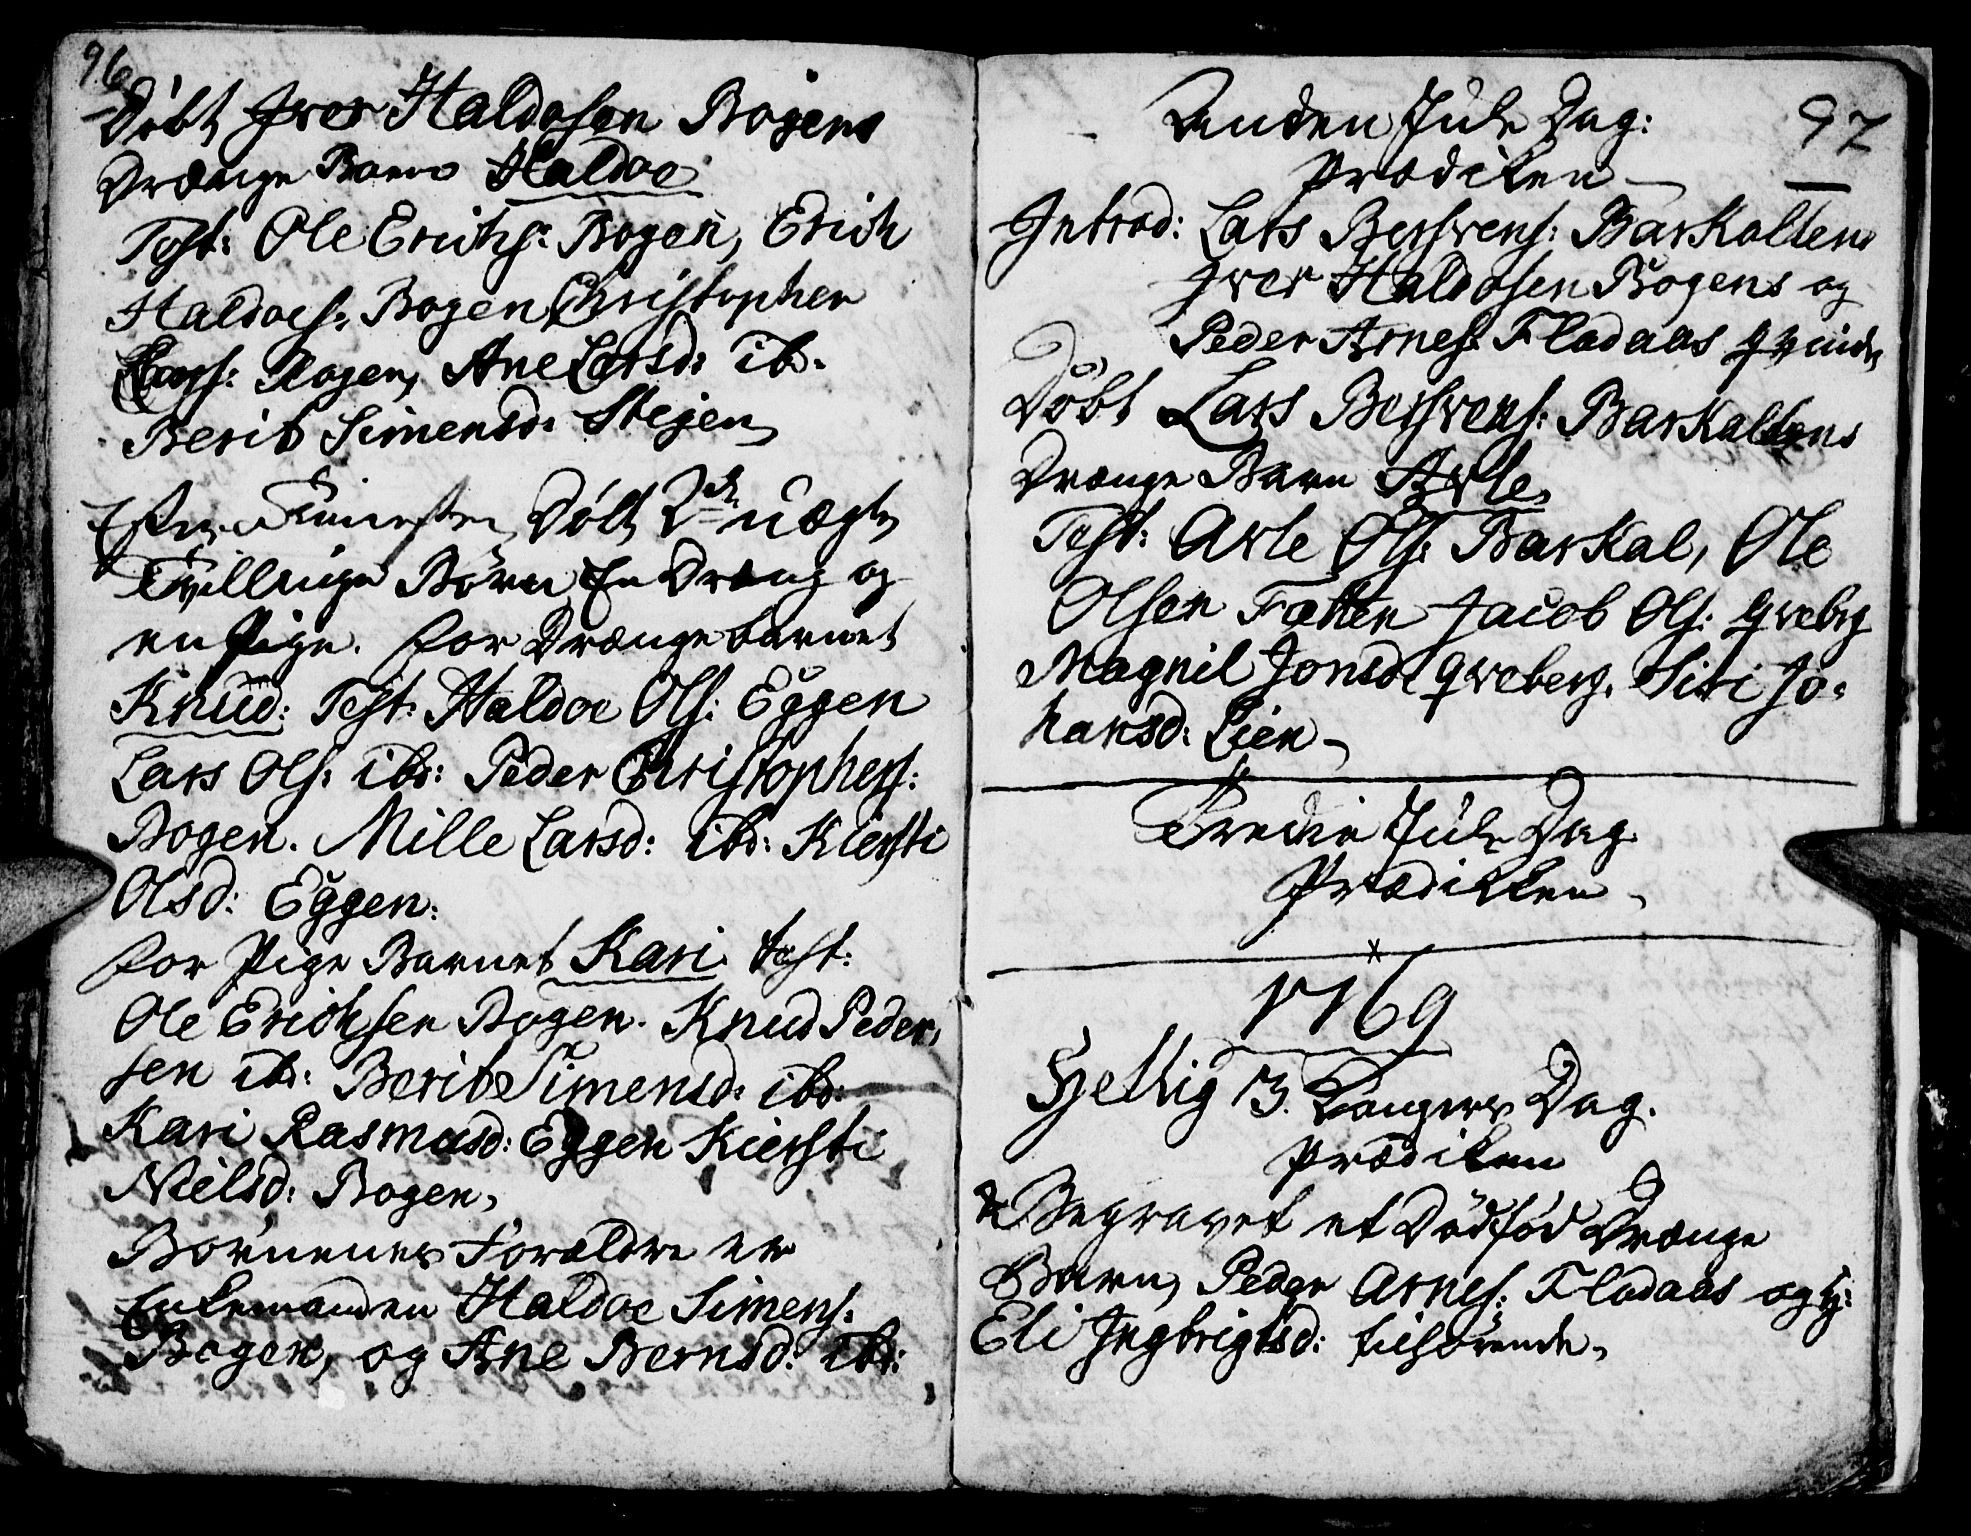 96
Döbt Iver Haldosen Bogens
Drænge Barn Haldoe
Test: Ole Erichs: Bogen, Erich
Haldoes: Bogen Christopher
Lars: Bogen, Ane Larsd: ib:
Berit Simensd: Stejen
Efter Tienesten Döbt 2de uægte
Tvillinge Börn, En Dræng og
en Pige. for Drænge barnet
Knud: Test: Haldoe Ols: Eggen
Lars Ols: ibd: Peder Christophers:
Bogen. Mille Larsd: ibd: Kiersti
Olsd: Eggen:
for Pige Barnet Kari test:
Ole Erichsen Bogen. Knud Peder,
sen ibd: Berit Simensd: ibd:
Kari Rasmusd: Eggen Kiersti
Nielsd: Bogen,
Börnenes Forældre er
Enkemanden Haldoe Simens:
Bogen, og Ane Bernsd: ibd:
97
Anden Jule Dag:
Prædiken
Introd: Lars Bersvens: Barkaltens
Iver Haldosen Bogens og
Peder Arnes: Flodaas qvinde
Döbt Lars Bersvens: Barkaltens
Drænge Barn Arle,
Test: Arle Ols: Barkal, Ole
Olsen Fætten Jacob Ols: Qveberg
Magnil Jonsd: Qveberg. Siri Jo:
hansd: Lien
Tredie Jule Dag
Prædiken
1769
Hellig 3. Konger Dag.
Prædiken
Begravet et Dödföd Drænge
Barn, Peder Arnes: Flodaas og H:
Eli Ingbrigtsd: tilhörende,